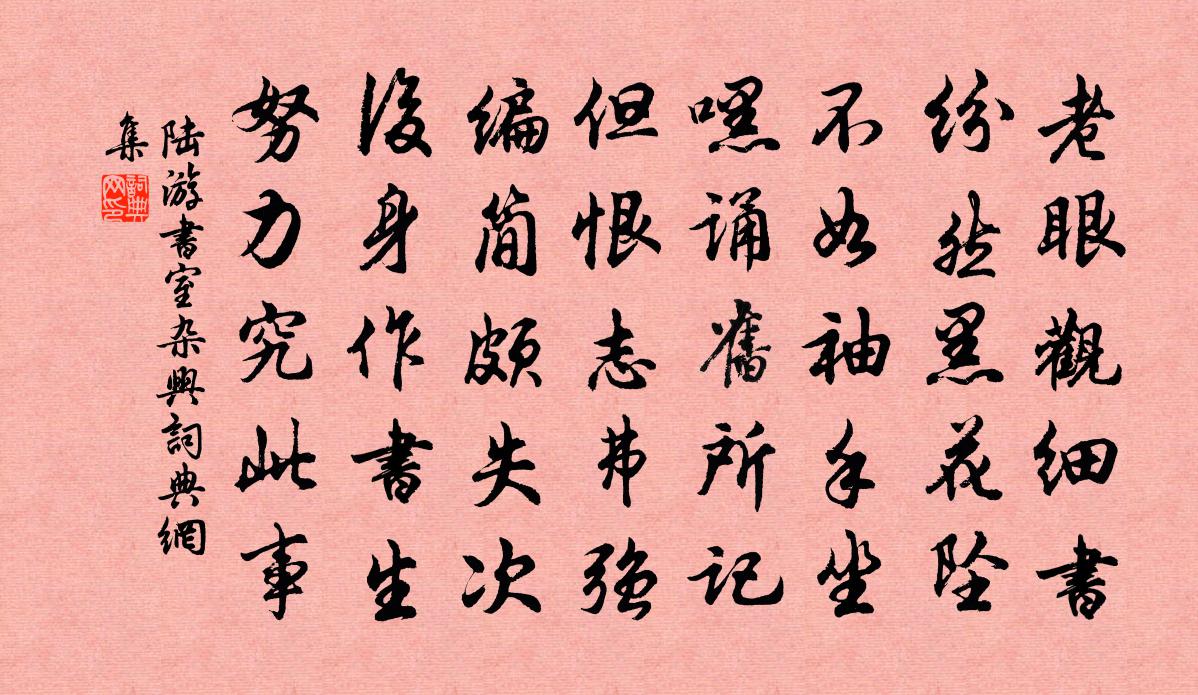 老眼觀細書
紛然黑花墜
不如袖手坐
嘿誦舊所記
但恨志弗强
编简頗失次
後身作書生
努力究此事
陆游書室杂興詞典網
集
詞典
网印